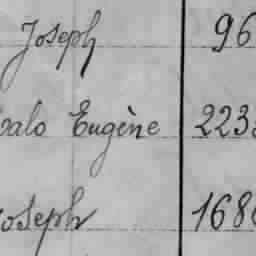 Joseph 96
Eugène 223
Joseph 168